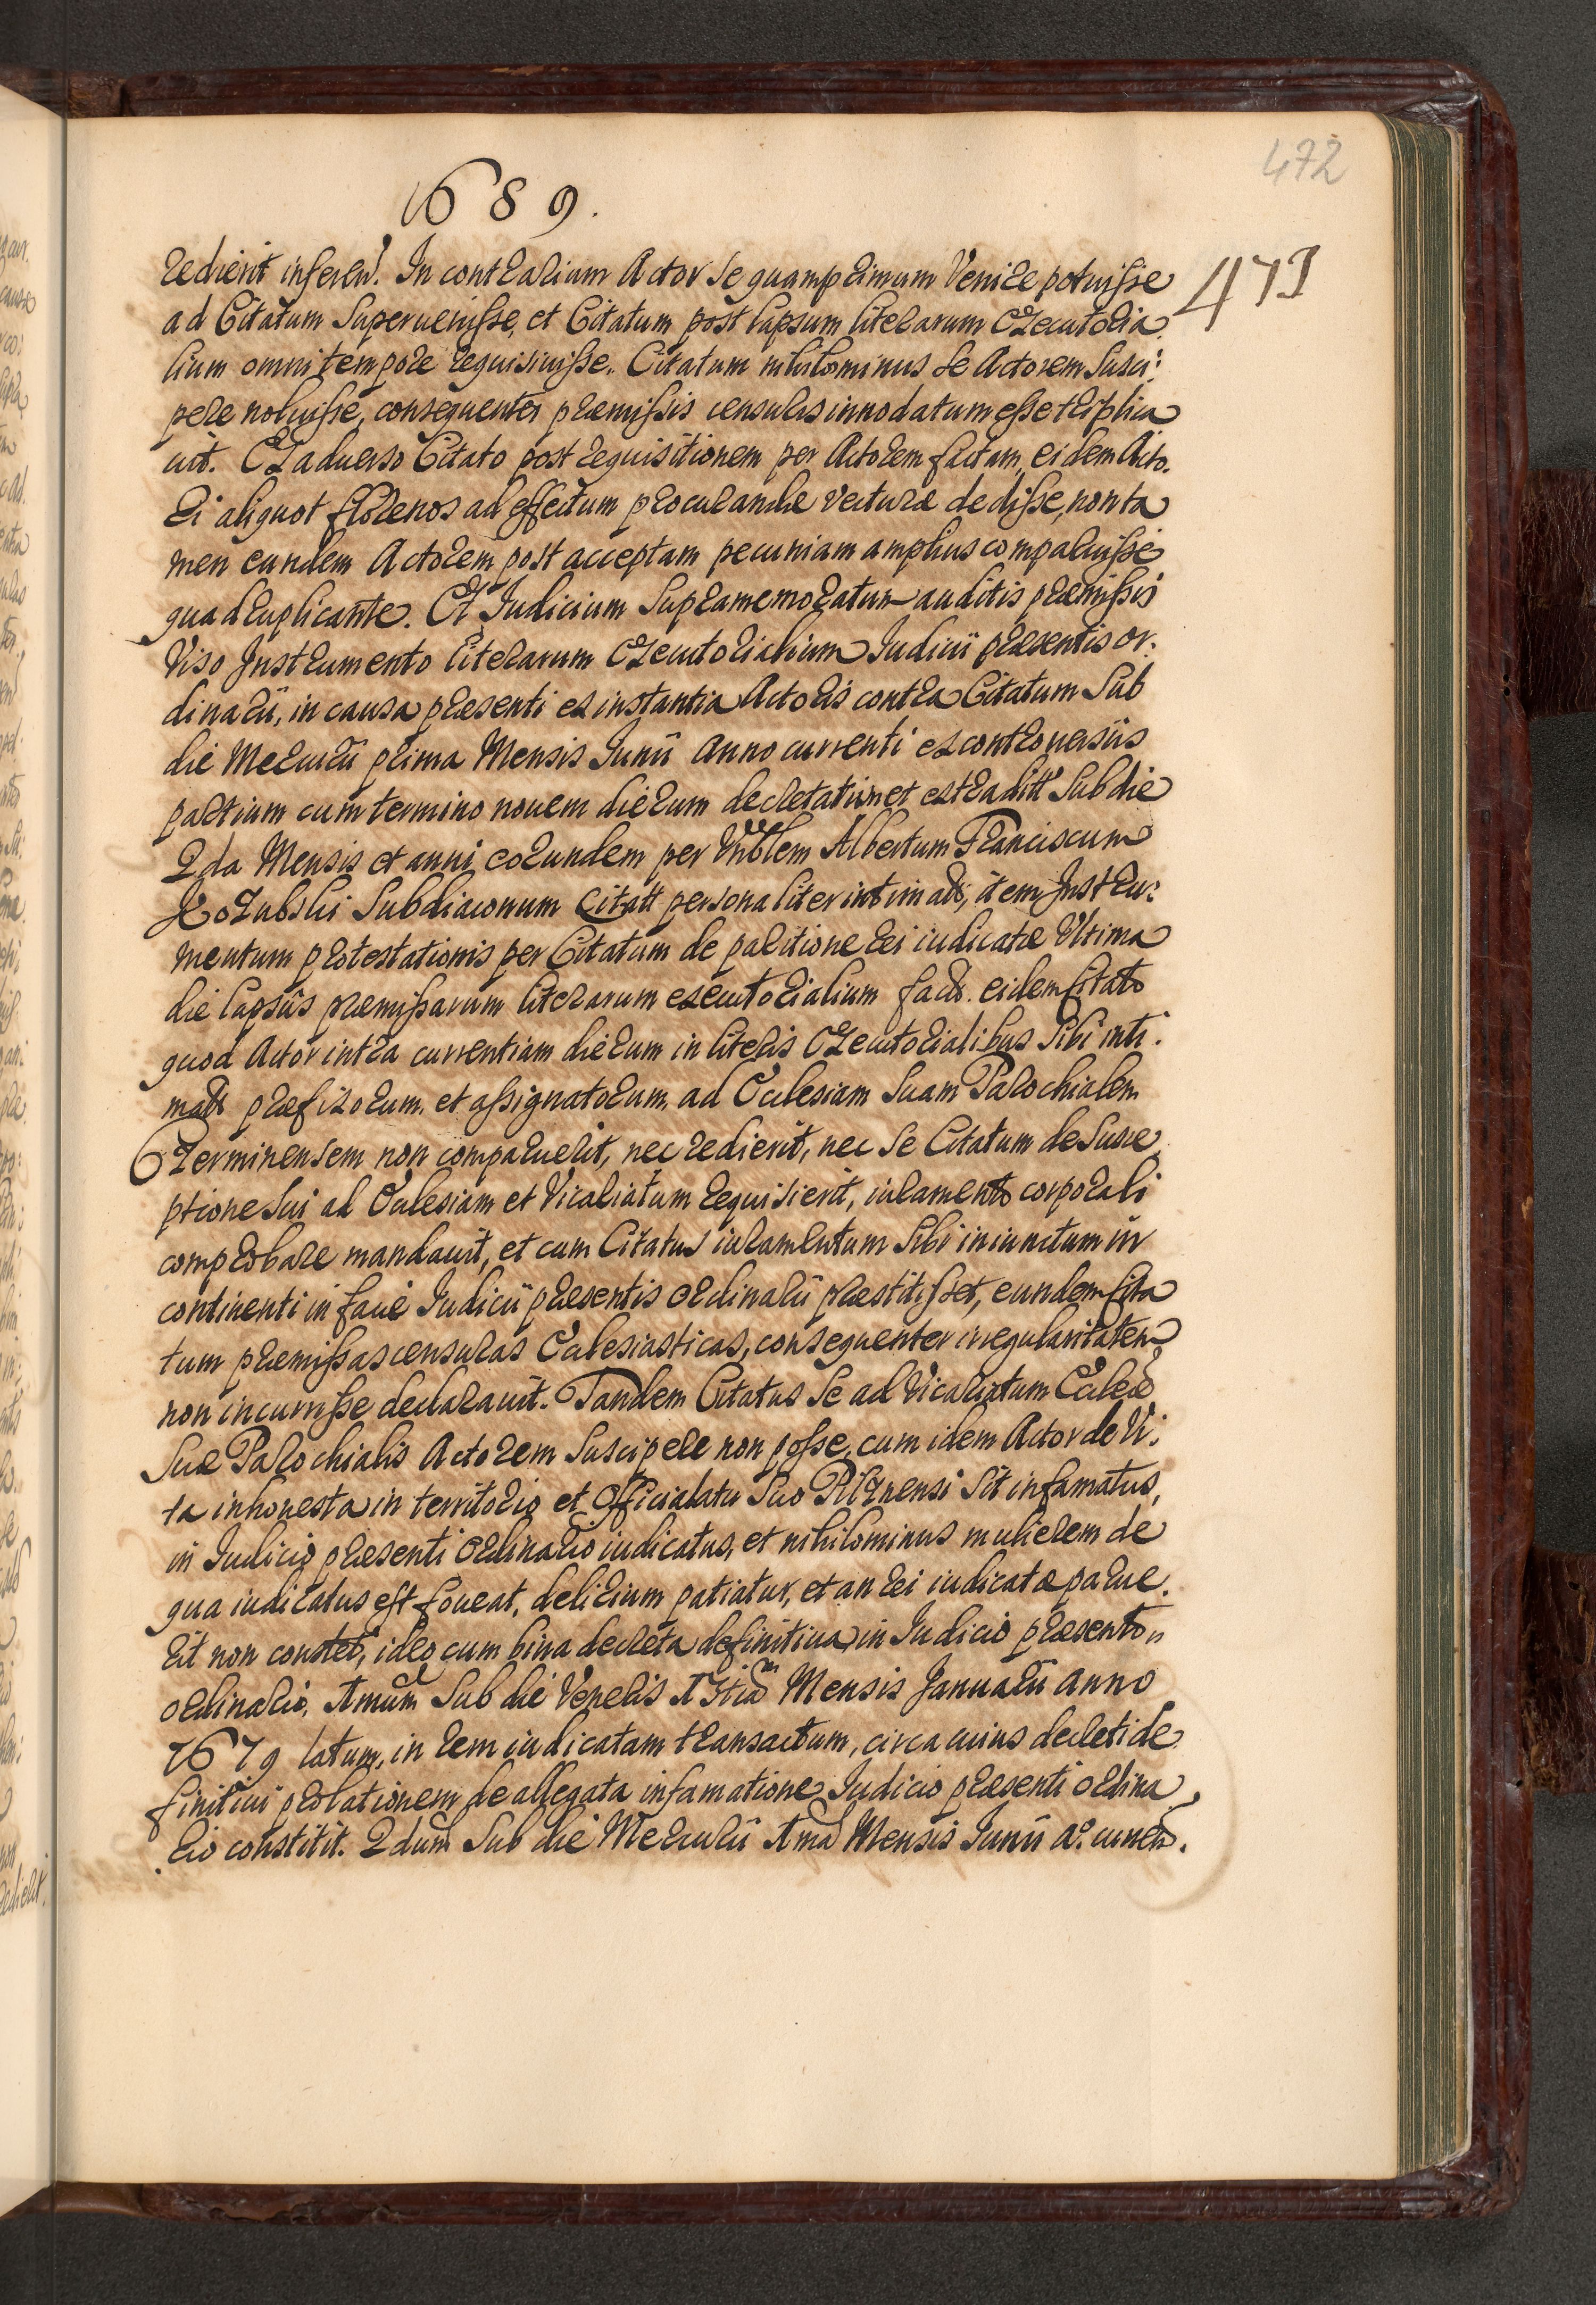 472
1689.
473
redierit inferen. In contrarium Actor se quamprimum Venire potuisse
ad Citatum Superuenisse, et Citatum post lapsum literarum Executoria
lium omni tempore requisiuisse. Citatum nihilominus se Actorem Susci:
pere noluisse, consequenter præmissis censuris innodatum esse triplica
uit. Ex aduerso Citato post requisitionem per Actorem factam, eidem Acto.
ri aliquot florenos ad effectum procurandæ vecturæ dedisse, non ta
men eundem Actorem post acceptam pecuniam amplius comparuisse
quadruplicante. Et Iudicium Supramemoratum auditis præmissis
Viso Instrumento literarum Executorialium Iudicii præsentis or:
dinarii, in causa præsenti ex instantia Actoris contra Citatum Sub
die Mercurii prima Mensis Iunii Anno currenti ex controuersiis
partium cum termino nouem dierum decretatum et extraditt Sub die
2da Mensis et anni eorundem per Vnblem Albertum Franciscum
Subdiaconum Citatt personaliter intimatt, item Instru:
mentum protestationis per Citatum de paritione rei iudicatæ Vltima
die lapsus præmissarum literarum executorialium fact. eidem Citato
quod Actor intra currentiam dierum in literis Executorialibus Sibi inti.
matt præfixorum, et assignatorum, ad Ecclesiam Suam Parochialem
Czerminensem non comparuerit, nec redierit, nec se Citatum de Susce
ptione Sui ad Ecclesiam et Vicariatum requisierit, iuramento corporali
comprobare mandauit, et cum Citatus iuramentum Sibi iniunctum in
continenti in facie Iudicii præsentis ordinarii præstitisset, eundem Cita
tum præmissas censuras Ecclesiasticas, consequenter irregularitatem
non incurrisse declarauit. Tandem Citatus Se ad Vicariatum Eccleæ
Suæ Parochialis Actorem Suscipere non posse, cum idem Actor de Vi:
ta inhonesta in territorio et Officialatu Suo Pilznensi Sit infamatus,
in Iudicio præsenti ordinario iudicatus, et nihilominus mulierem de
qua iudicatus est foueat, delirium patiatur, et an rei iudicatæ parue.
rit non constet, ideo cum bina decreta definitiua in Iudicio præsento
ordinario, 1mum Sub die Veneris Mensis Januarii anno
1679 latum, in rem iudicatam transactum, circa cuius decreti de
finitiui prolationem de allegata infamatione Iudicio præsenti ordina
rio constitit. 2dum Sub die Mercurii 1ma Mensis Iunii Ao. curren.